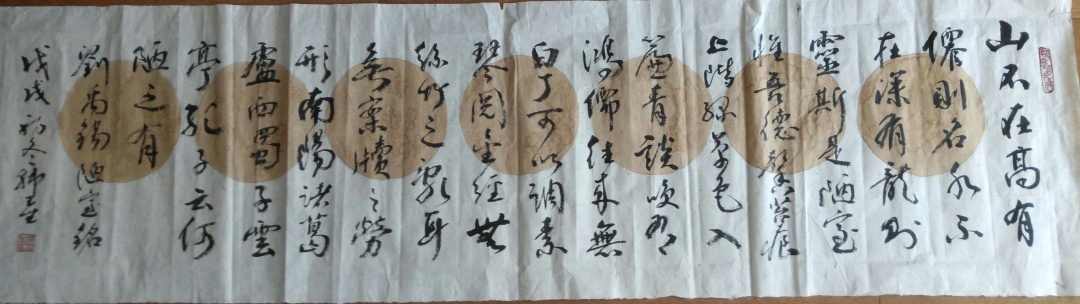 山不在高有
僊則名水不
在深有龍則
靈斯是陋室
惟吾德馨苔痕
上階綠草色入
簾青談笑有
鴻儒往來無
白丁可以調素
琴閱金經無
絲竹之亂耳
無案牘之勞
形南陽諸葛
廬西蜀子雲
亭孔子云何
陋之有
劉禹錫陋室銘
戊戌初冬